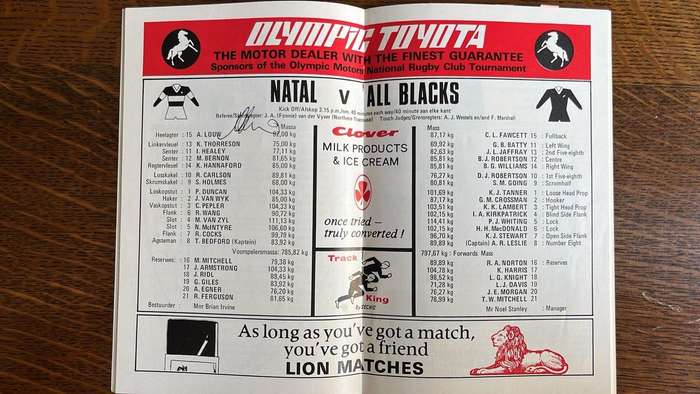 OLYMPIC TOYOTA
THE MOTOR DEALER WITH THE FINEST GUARANTEE
Sponsors of the Olympic Motors National Rugby Club Tournament
NATAL v ALL BLACKS
Kick Off/Afskop 3.15 p.m./nm. 40 minutes each way/40 minute aan elke kant
Referee/Skeidsregter: J. A. (Fonnie) van der Vyver (Northern Transvaal) Touch Judges/Grensregters: A. J. Wessels en/and F. Marshall
Massa
Heelagter : 15 A. LOUW 97,00 kg
Linkervleuel : 13 K. THORRESON 75,00 kg
Senter : 11 I. HEALEY 77,11 kg
Senter : 12 M. BERNON 81,65 kg
Regtervleuel : 14 K. HANNAFORD 85,00 kg
Losskakel : 10 R. CARLSON 89,81 kg
Skrumskakel : 9 S. HOLMES 68,00 kg
Loskopstut : 1 P. DUNCAN 104,33 kg
Haker : 2 J. VAN WYK 85,00 kg
Vaskopstut : 3 C. PEPLER 104,33 kg
Flank : 6 R. WANG 90,72 kg
Slot : 4 M. VAN ZYL 111,13 kg
Slot : 5 N. McINTYRE 106,60 kg
Flank : 7 R. COCKS 99,79 kg
Agsteman : 8 T. BEDFORD (Kaptein) 83,92 kg
Voorspelersmassa: 785,82 kg
Reserwes: 16 M. MITCHELL 79,38 kg
17 J. ARMSTRONG 104,33 kg
18 J. RIDL 88,45 kg
19 G. GILES 83,92 kg
20 A. EGNER 76,20 kg
21 R. FERGUSON 81,65 kg
Bestuurder : Mnr Brian Irvine
Clover
MILK PRODUCTS
& ICE CREAM
once tried –
truly converted !
Track
King
Mass
87,17 kg C. L. FAWCETT 15 : Fullback
69,92 kg G. B. BATTY 11 : Left Wing
82,63 kg J. L. JAFFRAY 13 : 2nd Five-eighth
82,10 kg B. J. ROBERTSON 12 : Centre
81,65 kg B. G. WILLIAMS 14 : Right Wing
76,20 kg D. J. ROBERTSON 10 : 1st Five-eighth
S. M. GOING 9 : Scrumhalf
101,69 kg K. J. TANNER 1 : Loose Head Prop
87,17 kg G. M. CROSSMAN 2 : Hooker
103,51 kg K. K. LAMBERT 3 : Tight Head Prop
102,15 kg I. A. KIRKPATRICK 4 : Blind Side Flank
111,22 kg P. J. WHITING 5 : Lock
102,15 kg H. H. MacDONALD 6 : Lock
K. J. STEWART 7 : Open Side Flank
89,89 kg (Captain) A. R. LESLIE 8 : Number Eight
797,67 kg : Forwards Mass
R. A. NORTON 16 : Reserves
K. HARRIS 17
L. G. KNIGHT 18
L. J. DAVIS 19
J. E. MORGAN 20
T. W. MITCHELL 21
Mr Noel Stanley : Manager
As long as you've got a match,
you've got a friend
LION MATCHES